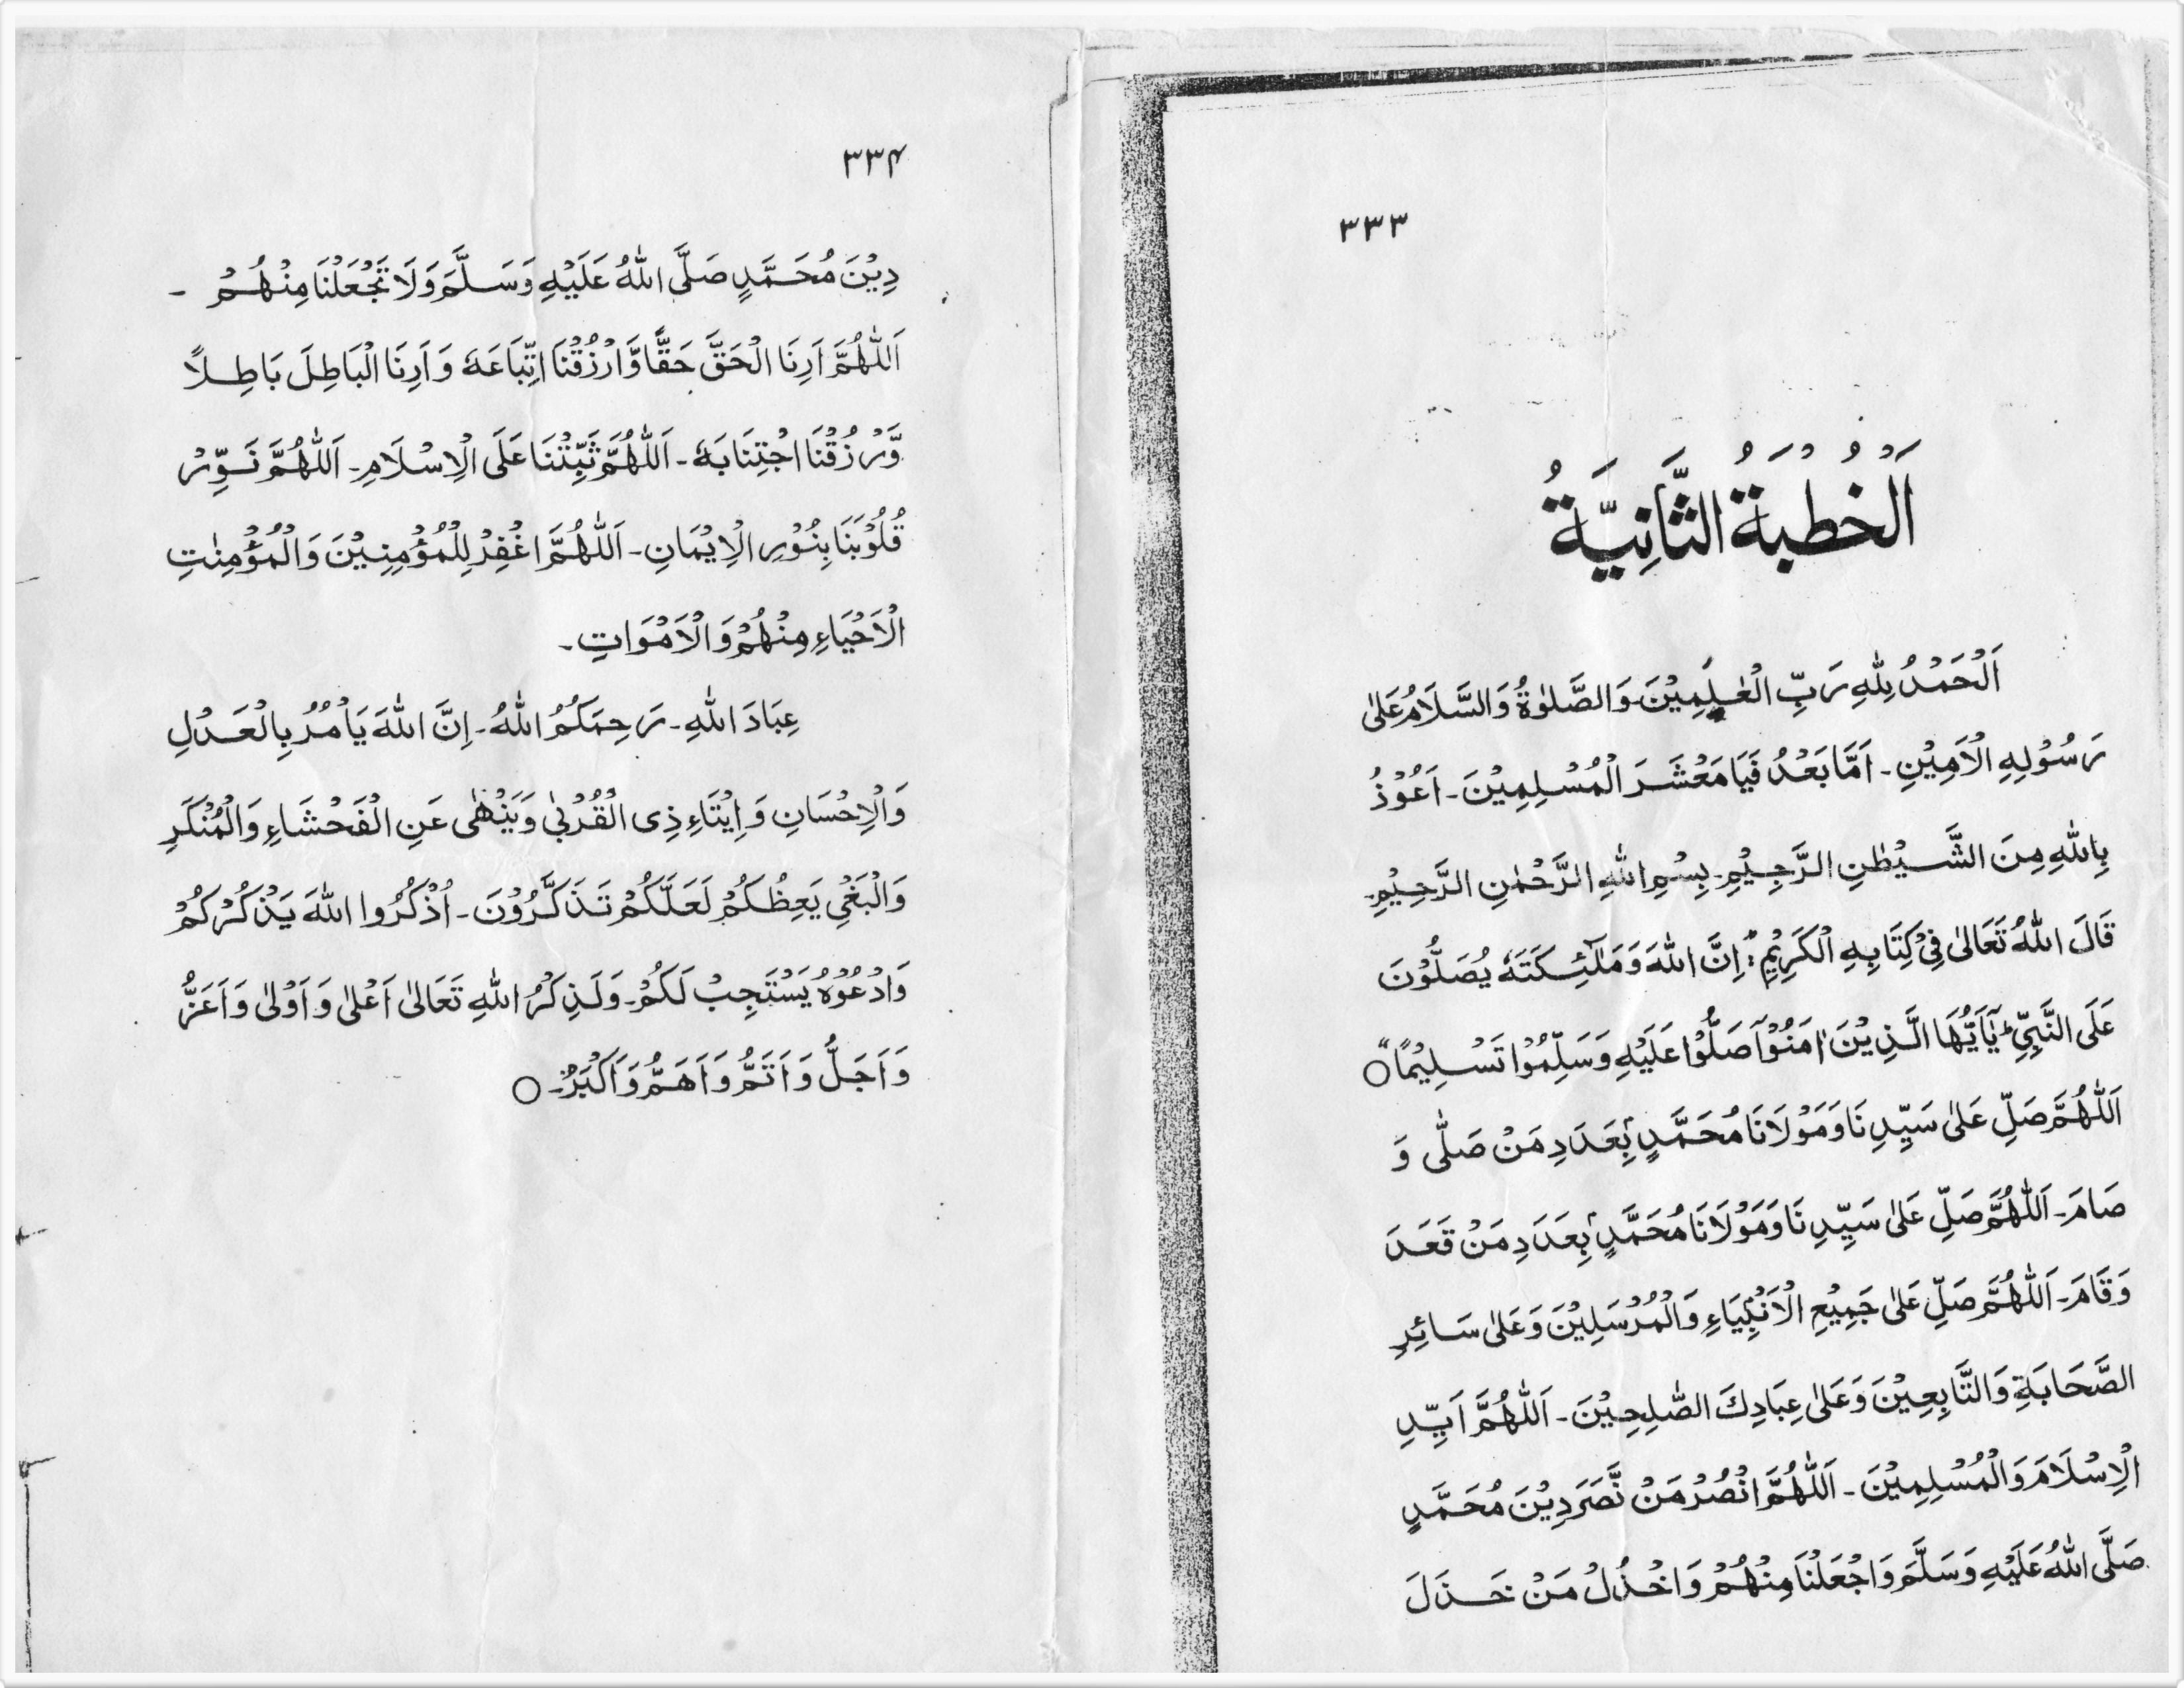 ٣٣٣
اَلْخُطْبَةُ الثَّانِيَّةُ
اَلْحَمْدُ لِلّٰهِ رَبِّ الْعٰلَمِيْنَ وَالصَّلٰوةُ وَالسَّلَامُ عَلٰى
رَسُوْلِهِ الْاَمِيْنِ۔ اَمَّا بَعْدُ فَيَا مَعْشَرَ الْمُسْلِمِيْنَ۔ اَعُوْذُ
بِاللّٰهِ مِنَ الشَّيْطٰنِ الرَّجِيْمِ۔ بِسْمِ اللّٰهِ الرَّحْمٰنِ الرَّحِيْمِ۔
قَالَ اللّٰهُ تَعَالٰى فِيْ كِتَابِهِ الْكَرِيْمِ: اِنَّ اللّٰهَ وَمَلٰٓئِكَتَهٗ يُصَلُّوْنَ
عَلَى النَّبِيِّ ؕ يٰٓاَيُّهَا الَّذِيْنَ اٰمَنُوْا صَلُّوْا عَلَيْهِ وَسَلِّمُوْا تَسْلِيْمًا ○
اَللّٰهُمَّ صَلِّ عَلٰى سَيِّدِنَا وَمَوْلَانَا مُحَمَّدٍ بِعَدَدِ مَنْ صَلّٰى وَ
صَامَ۔ اَللّٰهُمَّ صَلِّ عَلٰى سَيِّدِنَا وَمَوْلَانَا مُحَمَّدٍ بِعَدَدِ مَنْ قَعَدَ
وَقَامَ۔ اَللّٰهُمَّ صَلِّ عَلٰى جَمِيْعِ الْاَنْبِيَاءِ وَالْمُرْسَلِيْنَ وَعَلٰى سَائِرِ
الصَّحَابَةِ وَالتَّابِعِيْنَ وَعَلٰى عِبَادِكَ الصّٰلِحِيْنَ۔ اَللّٰهُمَّ اَيِّدِ
الْاِسْلَامَ وَالْمُسْلِمِيْنَ۔ اَللّٰهُمَّ انْصُرْ مَنْ نَّصَرَ دِيْنَ مُحَمَّدٍ
صَلَّى اللّٰهُ عَلَيْهِ وَسَلَّمَ وَاجْعَلْنَا مِنْهُمْ وَاخْذُلْ مَنْ خَذَلَ
٣٣۴
دِيْنَ مُحَمَّدٍ صَلَّى اللّٰهُ عَلَيْهِ وَسَلَّمَ وَلَا تَجْعَلْنَا مِنْهُمْ۔
اَللّٰهُمَّ اَرِنَا الْحَقَّ حَقًّا وَّارْزُقْنَا اتِّبَاعَهٗ وَاَرِنَا الْبَاطِلَ بَاطِلًا
وَّرْزُقْنَا اجْتِنَابَهٗ۔ اَللّٰهُمَّ ثَبِّتْنَا عَلَى الْاِسْلَامِ۔ اَللّٰهُمَّ نَوِّرْ
قُلُوْبَنَا بِنُوْرِ الْاِيْمَانِ۔ اَللّٰهُمَّ اغْفِرْ لِلْمُؤْمِنِيْنَ وَالْمُؤْمِنٰتِ
الْاَحْيَاءِ مِنْهُمْ وَالْاَمْوَاتِ۔
عِبَادَ اللّٰهِ۔ رَحِمَكُمُ اللّٰهُ۔ اِنَّ اللّٰهَ يَاْمُرُ بِالْعَدْلِ
وَالْاِحْسَانِ وَاِيْتَاءِ ذِى الْقُرْبٰى وَيَنْهٰى عَنِ الْفَحْشَاءِ وَالْمُنْكَرِ
وَالْبَغْيِ يَعِظُكُمْ لَعَلَّكُمْ تَذَكَّرُوْنَ۔ اُذْكُرُوا اللّٰهَ يَذْكُرْكُمْ
وَادْعُوْهُ يَسْتَجِبْ لَكُمْ۔ وَلَذِكْرُ اللّٰهِ تَعَالٰى اَعْلٰى وَاَوْلٰى وَاَعَزُّ
وَاَجَلُّ وَاَتَمُّ وَاَهَمُّ وَاَكْبَرُ۔ ○